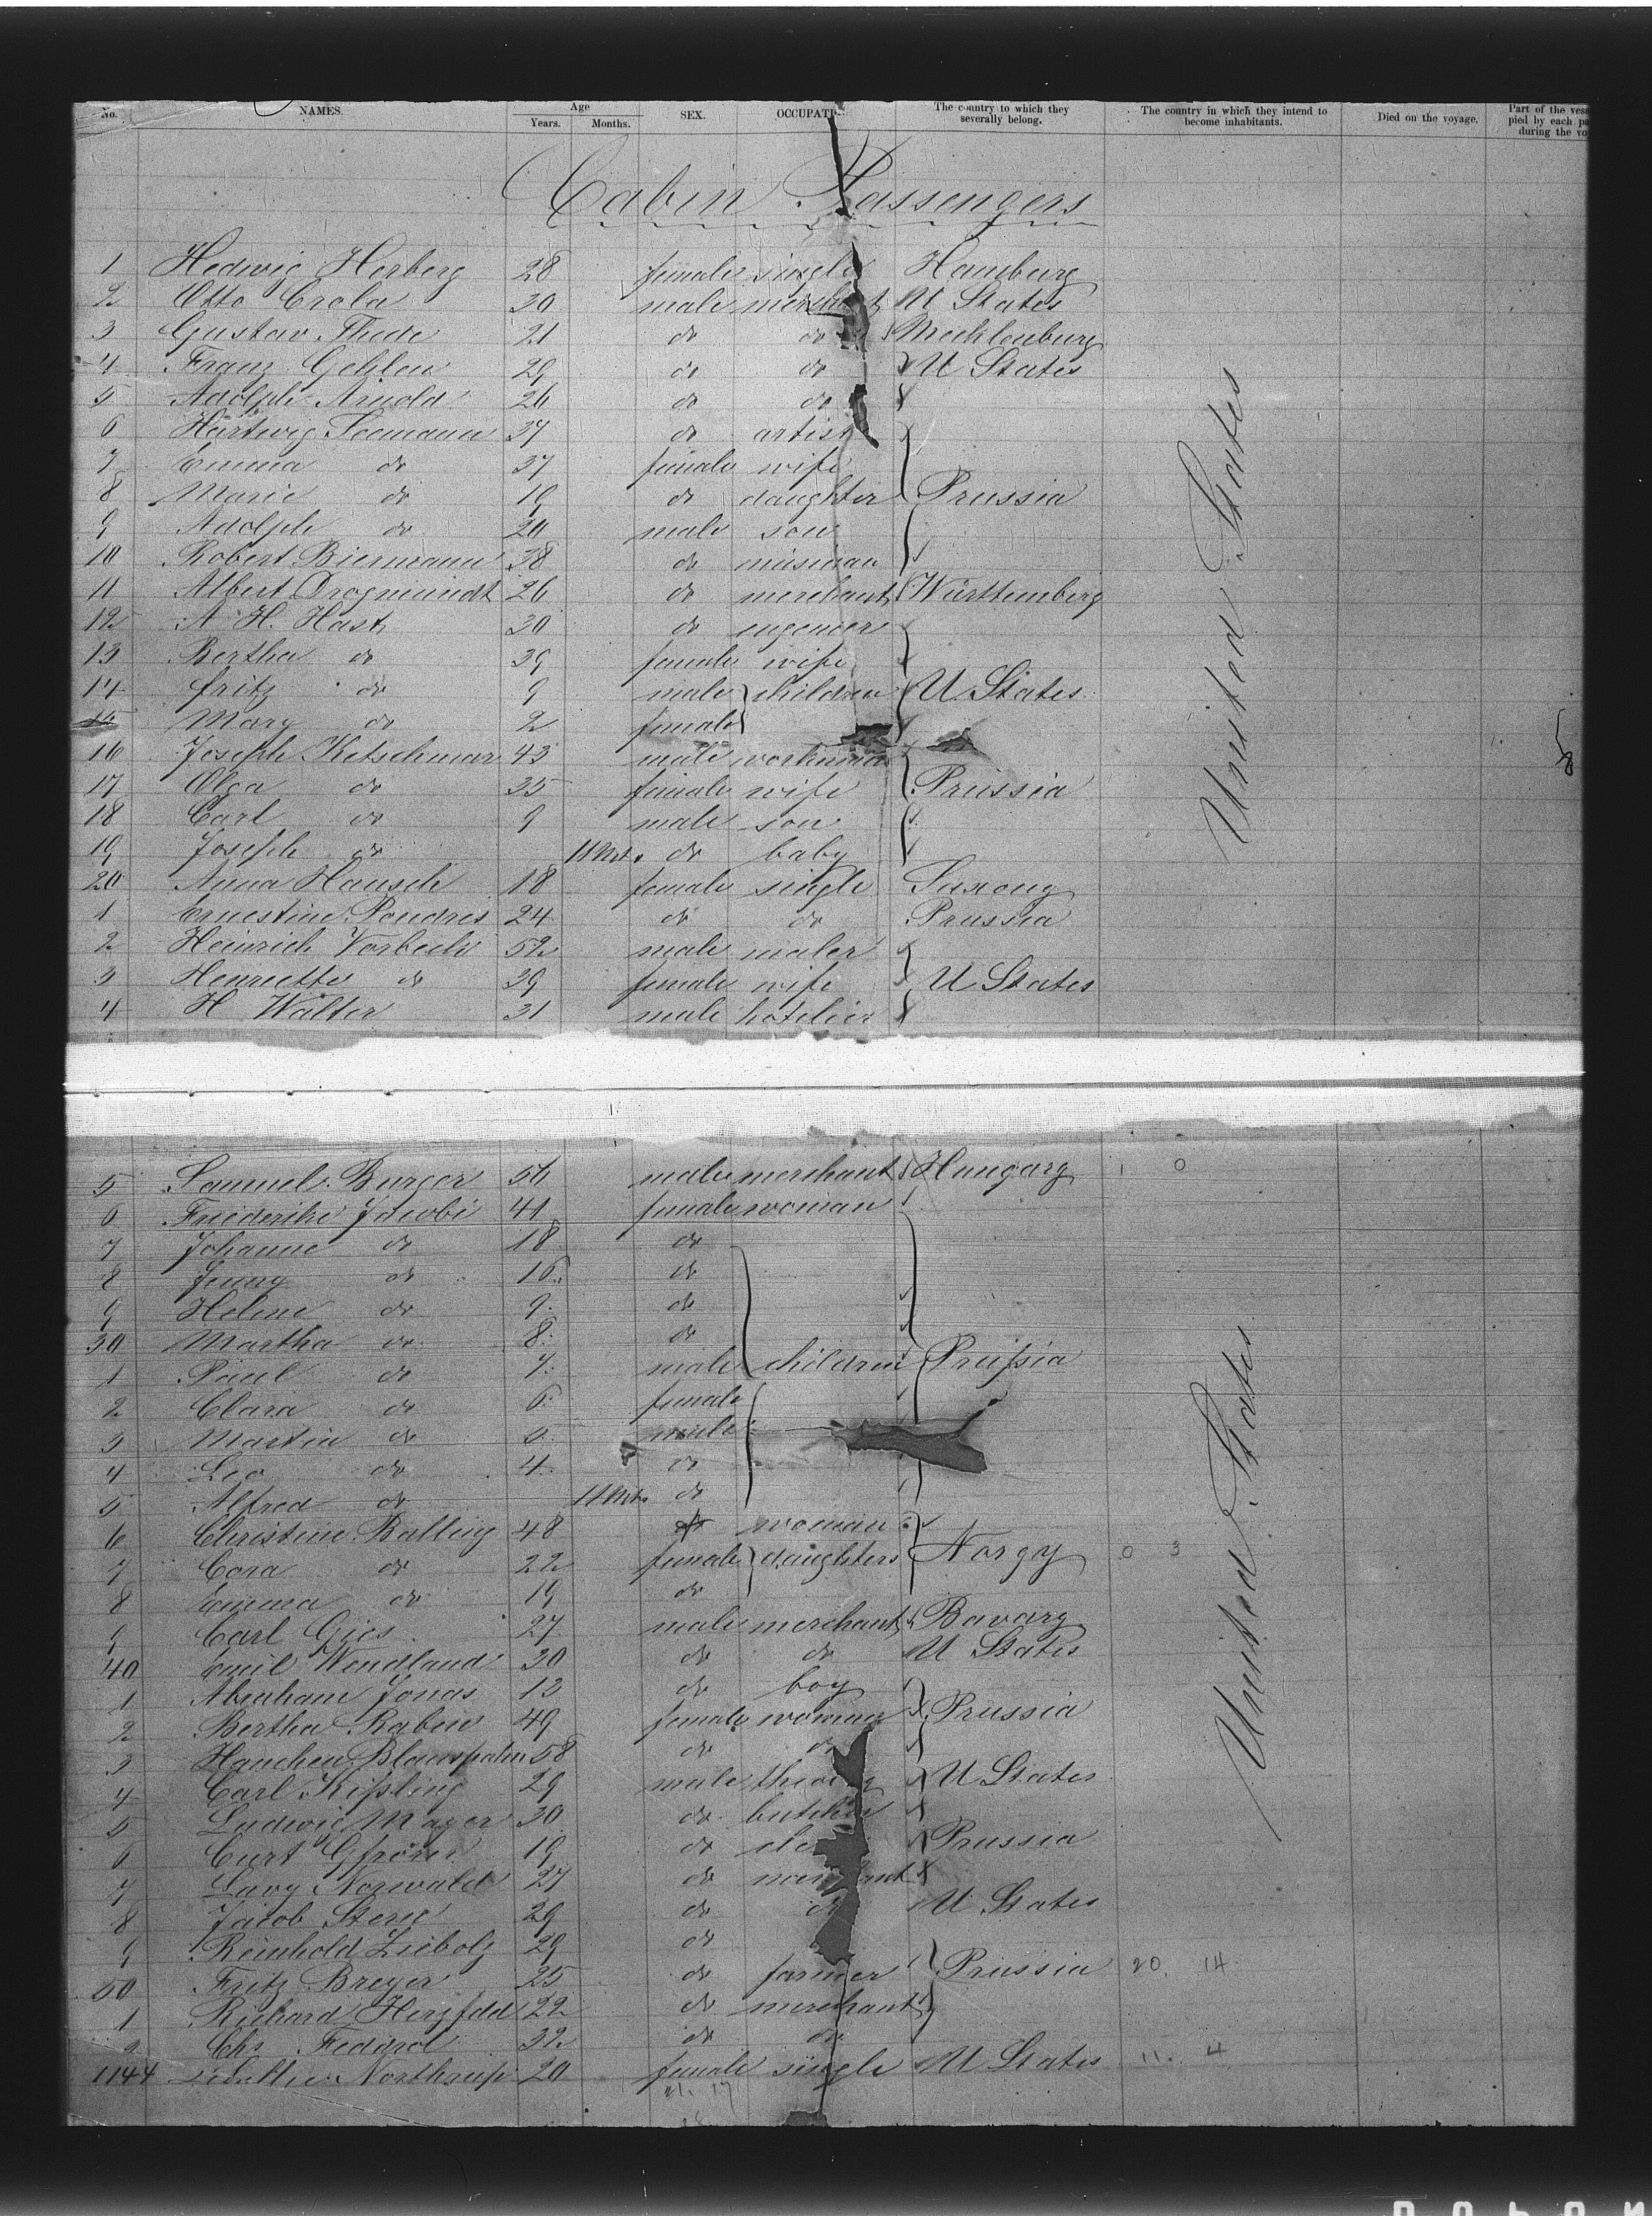 No. NAMES. Age Years. Months. SEX. OCCUPAT The country to which they severally belong. The country in which they intend to become inhabitants. Died on the voyage. Part of the vess pied by each pa during the vo
Cabin Passengers
1 Hedwig Herberg 28 female single Hamburg
2 Otto Crola 30 male merchant U States
3 Gustav Thede 21 do do Mecklenburg
4 Franz Gehlen 29 do do U States
5 Adolph Arnold 26 do do
6 Hartwig Seemann 37 do artist
7 Emma do 37 female wife
8 Marie do 19 do daughter Prussia
9 Adolph do 20 male son
10 Robert Biermann 38 do musician
11 Albert Drogmundt 26 do merchant Württemberg
12 A. H. Hast 30 do engeneer
13 Bertha do 39 female wife
14 fritz do 9 male children U States
15 Mary do 2 female
16 Joseph Ketschmar 43 male workman
17 Olga do 35 female wife Prussia
18 Carl do 9 male son
19 Joseph do 11 Mts. do baby
20 Anna Hausch 18 female single Saxony
1 Ernestine Pondres 24 do do Prussia
2 Heinrich Vorbeck 52 male maler
3 Henriette do 39 female wife U States
4 H Walter 31 male hotelier
United States
5 Samuel Burger 56 male merchant Hungary 1 0
6 Friederike Jacobi 41 female woman
7 Johanne do 18 do
8 Jenny do 16 do
9 Helene do 9 do
30 Martha do 8 do
1 Paul do 7 male children Preussia
2 Clara do 6 female
3 Martin do 5 male
4 Leo do 4 do
5 Alfred do 11 Mts do
6 Christine Balling 48 do woman
7 Cora do 22 female daughters Norgy 0 3
8 Emma do 19 do
9 Carl Gies 27 male merchant Bavary
40 Emil Wendland 30 do do U States
1 Abraham Jonas 13 do boy
2 Bertha Rabew 49 female woman Prussia
3 Hanchen 58 do do
4 Carl Kissling 29 male U States
5 Ludwig Mayer 30 do butcher
6 Curt Gfrörer 19 do Prussia
7 Lavy Norwald 27 do merchant
8 Jacob Stern 29 do do U States
9 Reinhold Liebolz 29 do
50 Fritz Breyer 25 do farmer Prussia 20. 14
1 Richard Herzfeld 22 do merchant
2 Chs 32 do do
1144 Northrup 20 female single U States 11. 4
United States